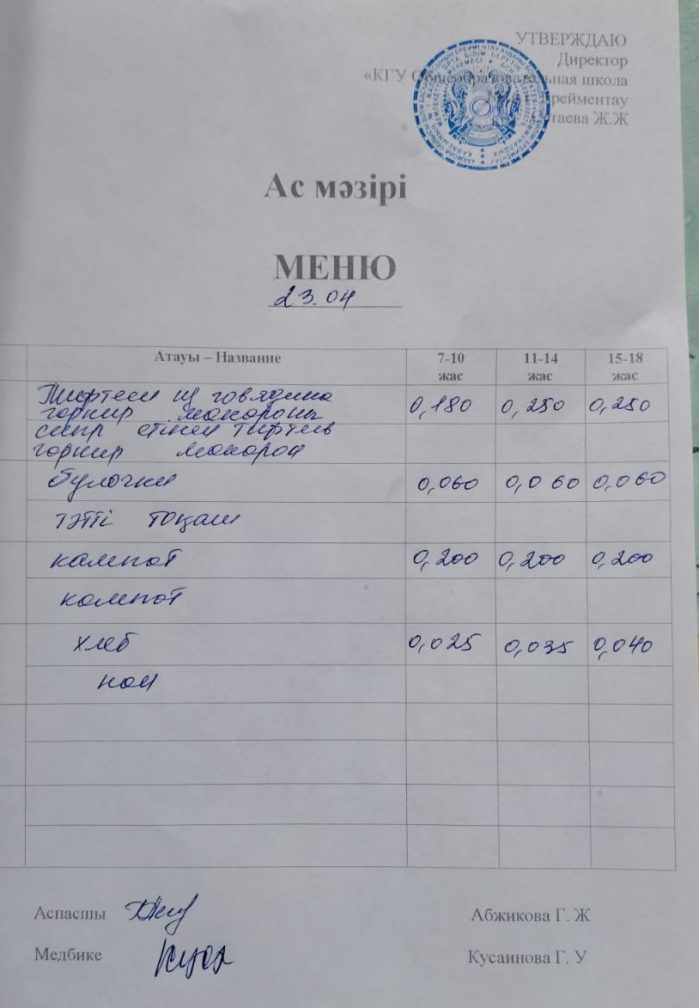 УТВЕРЖДАЮ
Директор
«КГУ Общеобразовательная школа
Ж.Ж
Ас мәзірі
МЕНЮ
23.04
Атауы – Название 7-10 жас 11-14 жас 15-18 жас
Тифтели из говядина 0,180 0,250 0,250
горнир макароны
сиыр етінен тифтели
горнир макарон
булочки 0,060 0,060 0,060
тәтті тоқаш
кампот 0,200 0,200 0,200
компот
хлеб 0,025 0,035 0,040
нан
Аспасшы Абжикова Г. Ж
Медбике Кусаинова Г. У